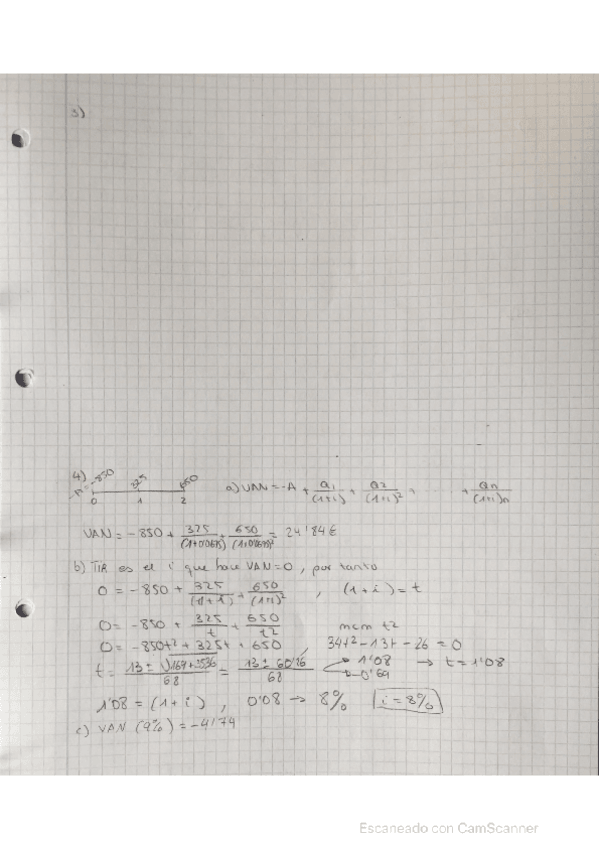 3)
4) -A = -850 325 650
0 1 2
a) VAN = -A + a1/(1+i) + a2/(1+i)^2 + ..... + an/(1+i)n
VAN = -850 + 325/(1+0'0675) + 650/(1+0'0675)^2 = 24'84€
b) TIR es el i que hace VAN=0, por tanto
0 = -850 + 325/(1+i) + 650/(1+i)^2 , (1+i) = t
0 = -850 + 325/t + 650/t^2 mcm t2
0 = -850t^2 + 325t + 650 34t^2 - 13t - 26 = 0
t = 13 ± √169+3536 / 68 = 13 ± 60'26 / 68 1'08 → t = 1'08
-0'69
1'08 = (1+i) , 0'08 → 8% i = 8%
c) VAN (9%) = -4'74
Escaneado con CamScanner